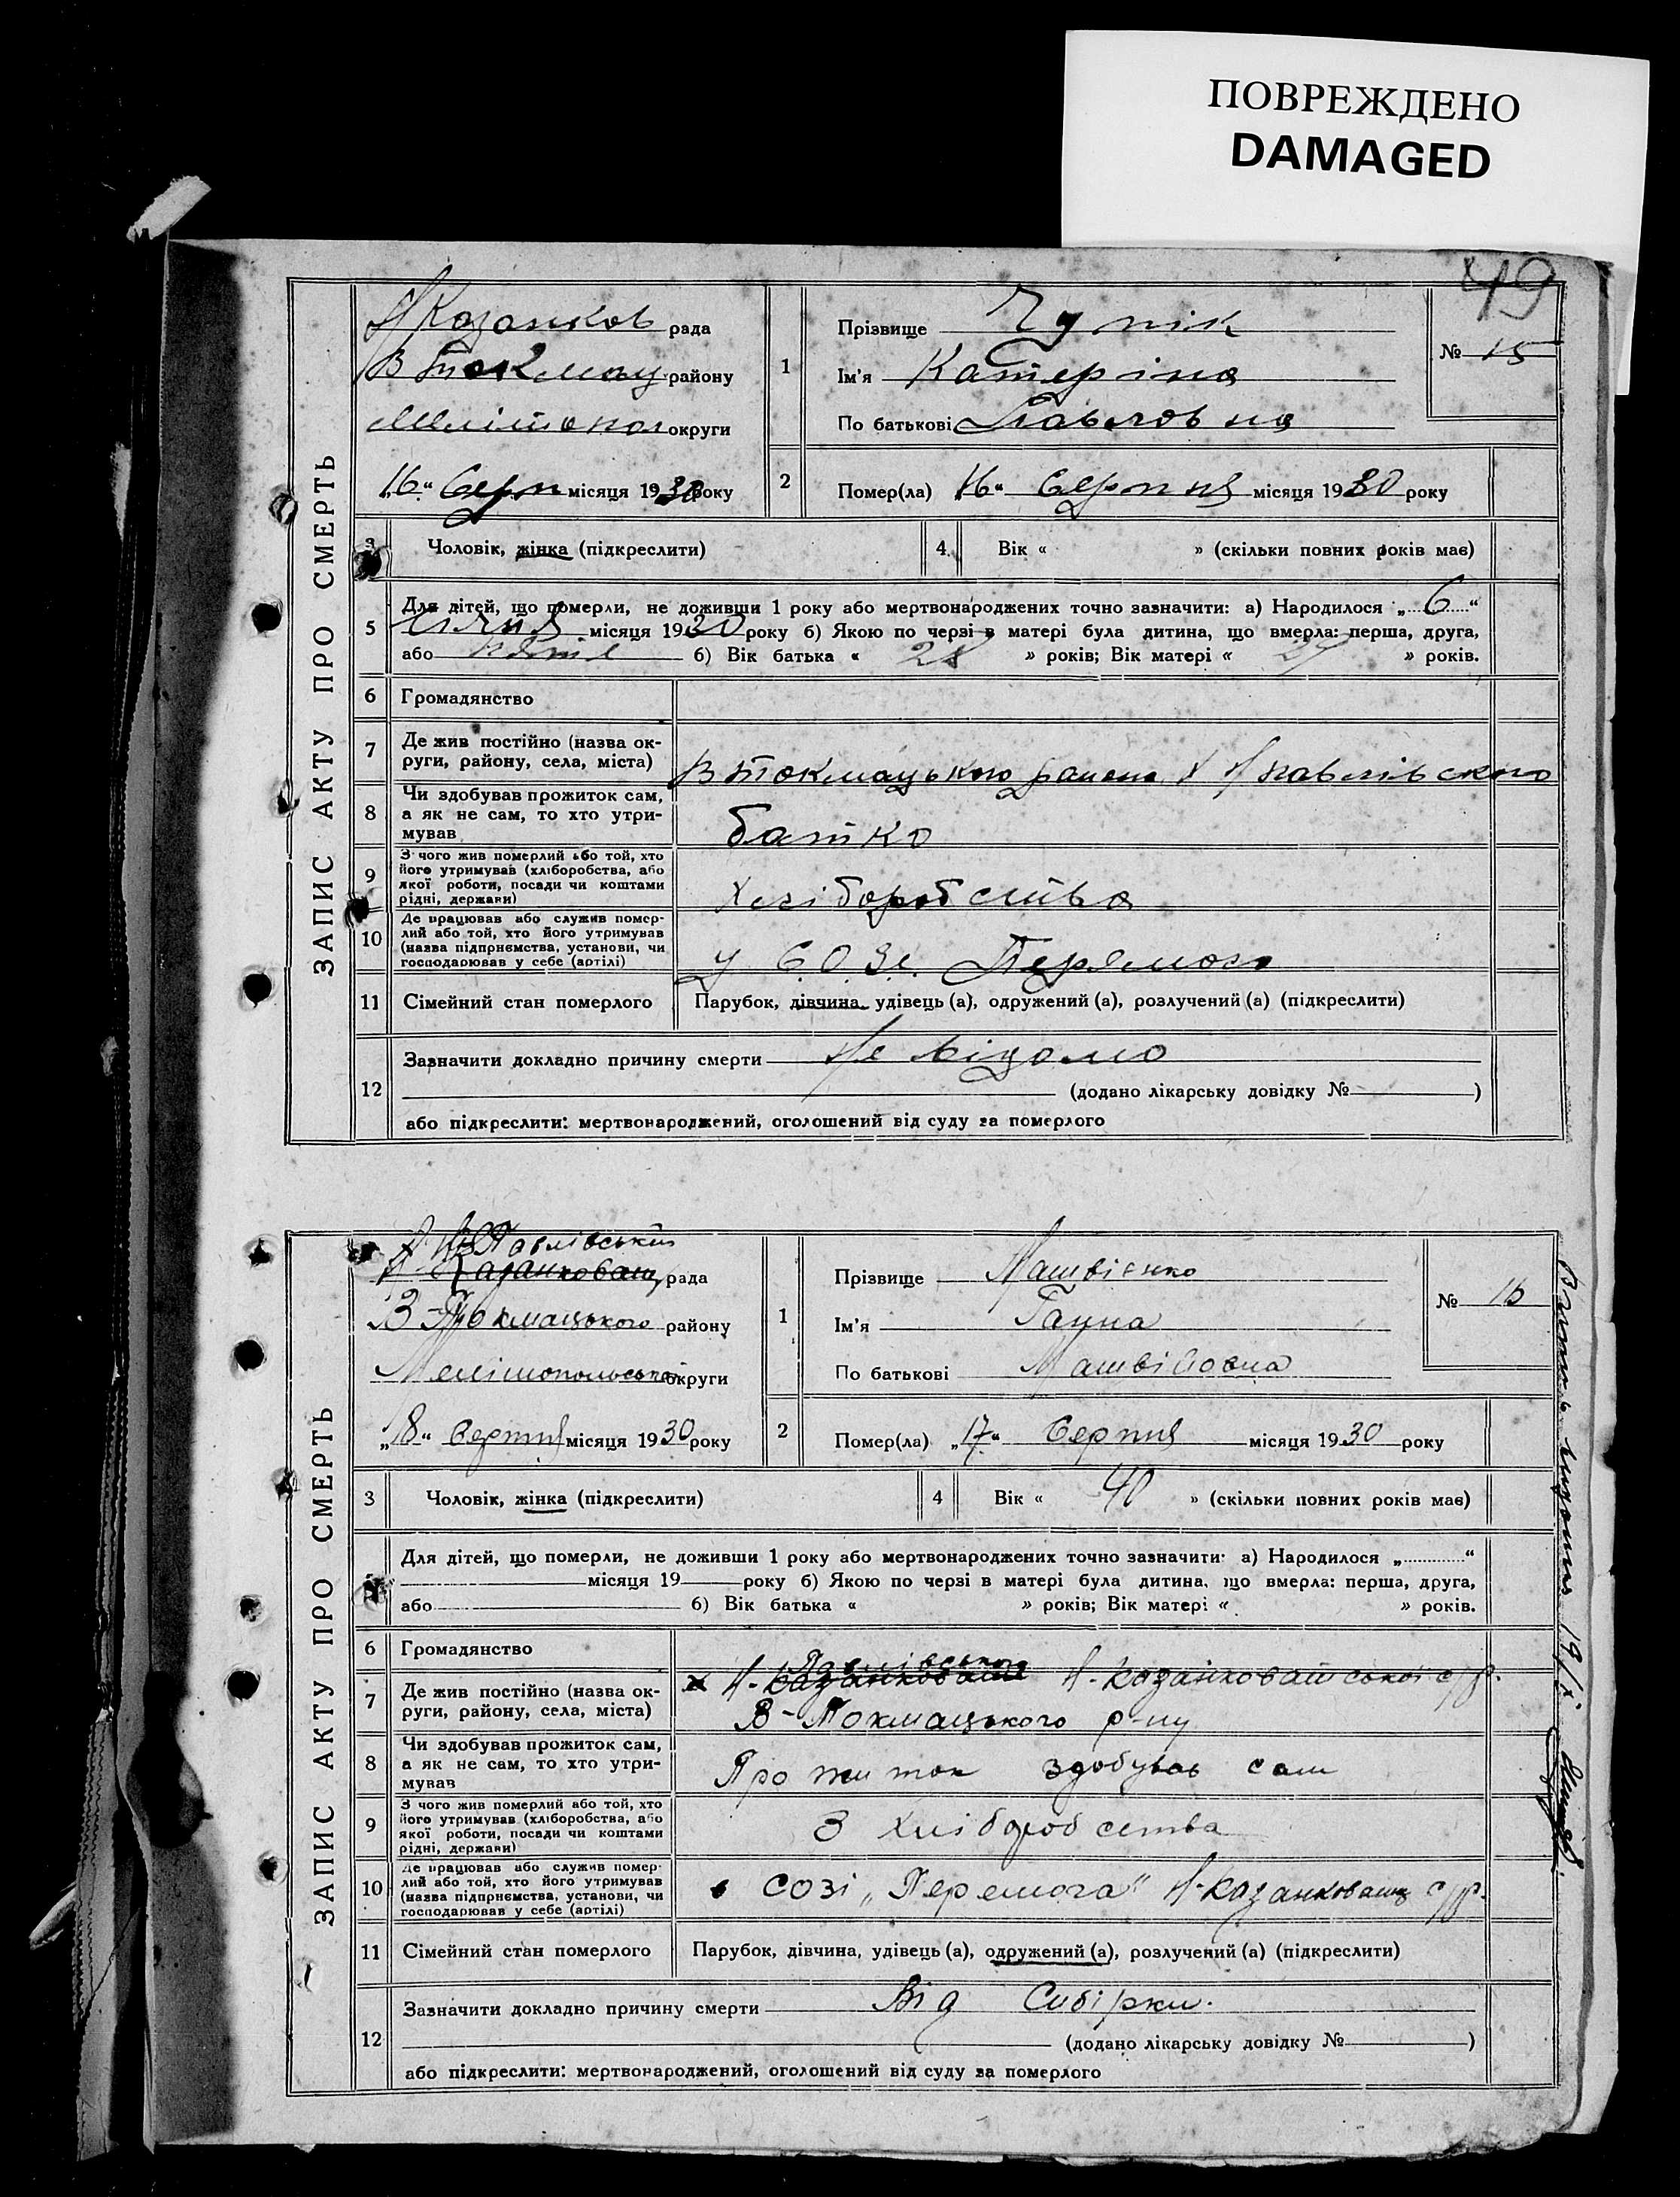 ПОВРЕЖДЕНО
DAMAGED
49
ЗАПИС АКТУ ПРО СМЕРТЬ
Н Козанков рада
В Токмац району
Мелітопол округи
„16“ Серп місяця 1930 року
1
Прізвище Чупік
Ім'я Катеріна
По батькові Павловна
№ 15
2
Помер(ла) 16“ Серпня місяця 1930 року
3
Чоловік, жінка (підкреслити)
4
Вік « » (скільки повних років має)
5
Для дітей, що померли, не доживши 1 року або мертвонароджених точно зазначити: а) Народилося „6“
місяця 1930 року б) Якою по черзі в матері була дитина, що вмерла: перша, друга,
або б) Вік батька « 28 » років; Вік матері « 27 » років.
6
Громадянство
7
Де жив постійно (назва ок-
руги, району, села, міста)
В Токмацького району х Н павлівского
8
Чи здобував прожиток сам,
а як не сам, то хто утри-
мував
батко
9
З чого жив померлий або той, хто
його утримував (хліборобства, або
якої роботи, посади чи коштами
рідні, держави)
хліборобства
10
Де працював або служив помер-
лий або той, хто його утримував
(назва підприємства, установи, чи
господарював у себе (артілі)
у С.О.Зі.
11
Сімейний стан померлого
Парубок, дівчина, удівець (а), одружений (а), розлучений (а) (підкреслити)
12
Зазначити докладно причину смерти Не відомо
(додано лікарську довідку № )
або підкреслити: мертвонароджений, оголошений від суду за померлого
ЗАПИС АКТУ ПРО СМЕРТЬ
Павлівський
Н-Казанковат рада
В-Токмацького району
Мелітопольської округи
„18“ Серпня місяця 1930 року
1
Прізвище Матвієнко
Ім'я Ганна
По батькові Матвійовна
№ 16
2
Помер(ла) „17“ Серпня місяця 1930 року
3
Чоловік, жінка (підкреслити)
4
Вік « 40 » (скільки повних років має)
Для дітей, що померли, не доживши 1 року або мертвонароджених точно зазначити: а) Народилося „ “
місяця 19 року б) Якою по черзі в матері була дитина, що вмерла: перша, друга,
або б) Вік батька « » років; Вік матері « » років.
6
Громадянство
7
Де жив постійно (назва ок-
руги, району, села, міста)
Павлівського
х Н-Казанковат Н-Казанковатської с/р.
В-Токмацького р-ну
8
Чи здобував прожиток сам,
а як не сам, то хто утри-
мував
Прожиток здобував сам
9
З чого жив померлий або той, хто
його утримував (хліборобства, або
якої роботи, посади чи коштами
рідні, держави)
З хліборобства
10
Де працював або служив помер-
лий або той, хто його утримував
(назва підприємства, установи, чи
господарював у себе (артілі)
в СОЗі „Перемога“ Н-Казанковац с/р.
11
Сімейний стан померлого
Парубок, дівчина, удівець (а), одружений (а), розлучений (а) (підкреслити)
12
Зазначити докладно причину смерти Від Сибірки.
(додано лікарську довідку № )
або підкреслити: мертвонароджений, оголошений від суду за померлого